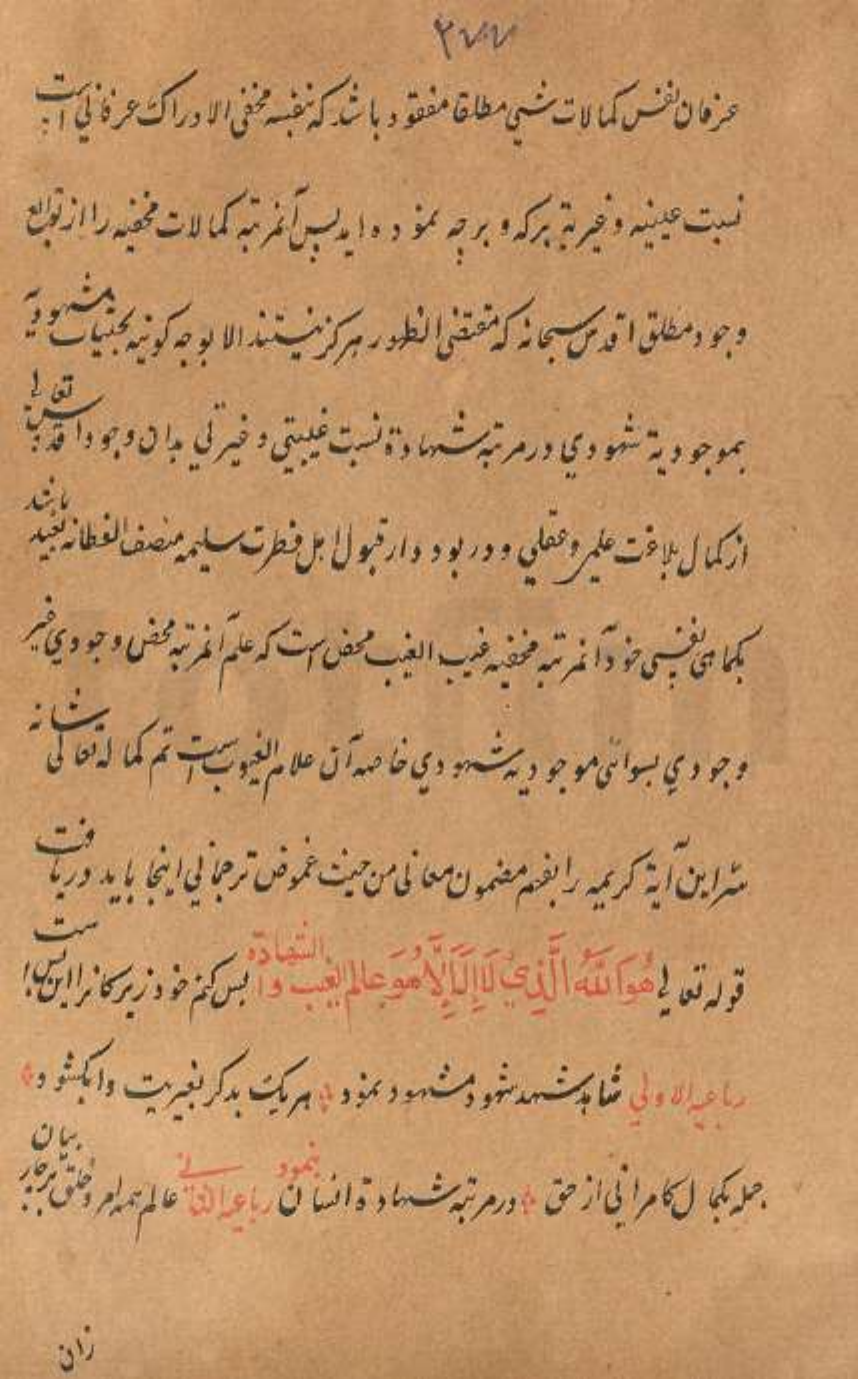 ۲۷۷
عرفان نفس کمالات شیی مطلقا مفقود باشد که بنفسه مخفی الادراک عرفانی است
نسبت عینیه و غیریة برکه و برچه نموده اید پس آنمرتبه کمالات مخفیه را از توابع
وجود مطلق اقدس سبحانه که مقتضی الظهور هرگز نیستند الا بوجه کونیه مشهودیه
بموجودیة شهودي در مرتبه شهادة نسبت غیبیتي و غیرتي بدان وجود اقدس تعالي
از کمال بلاغت علمي و عقلي و در بود و ار قبول اهل فطرت سلیمه منصف الفطانه بعید باشد
بکماهی بنفسی خود آنمرتبه مخفیه غیب الغیب محض است که علم آنمرتبه محض وجودي غیر
وجودي بسوائی موجودیه شهودي خاصه آن علام الغیوب است تم کماله تعالی شانه
سر این آیة کریمه را بفهم مضمون معانی من حیث غموض ترجمانی اینجا باید دریافت
قوله تعالي هُوَ اللّٰهُ الَّذِي لَا اِلٰهَ اِلَّا هُوَ عالم الغیب و الشهادة بس کنم خود زیرکانرا این بس است
رباعیه الاولي شاهد شهد شهود مشهود نمود هر یک بدگر بغیریت وابکشود
جمله بکمال کامرانی از حق در مرتبه شهادة انسان بنمود رباعیه الثانے عالم همه امر و خلق بیان
زان